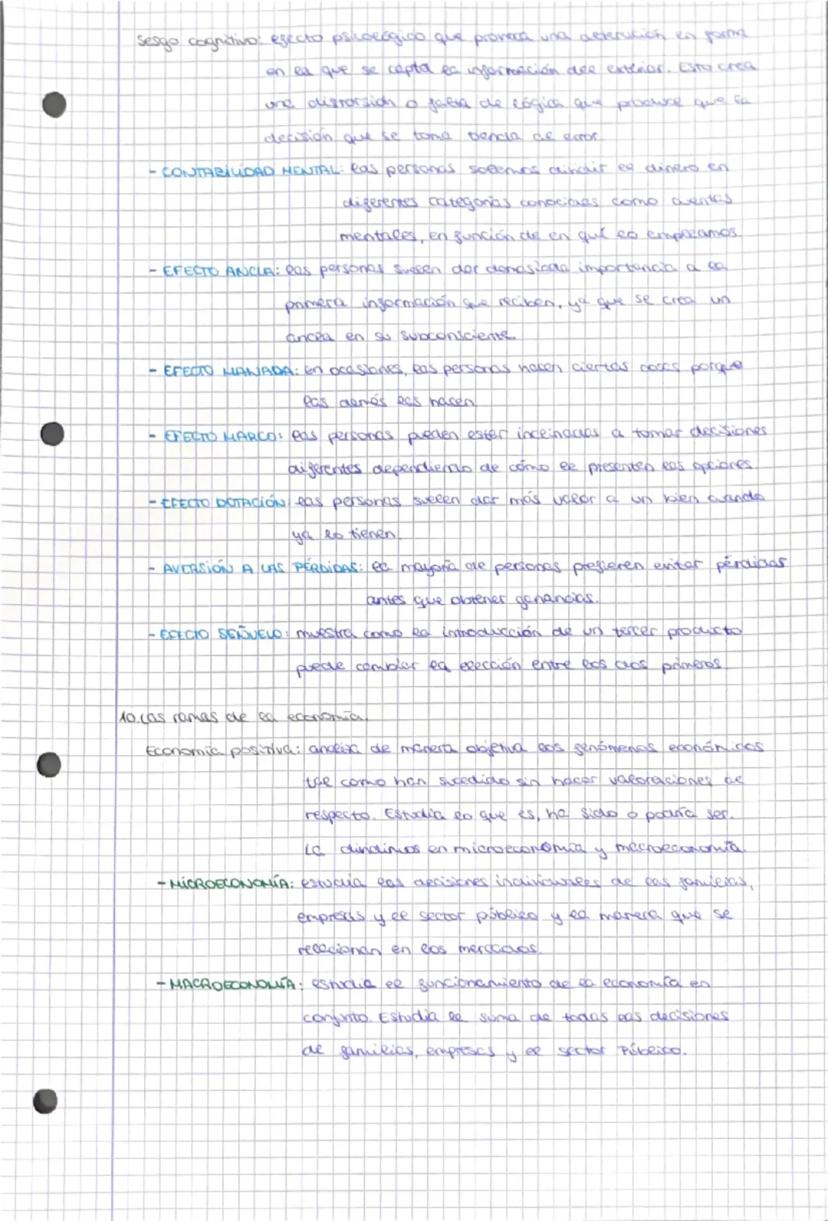 Sesgo cognitivo: efecto psicológico que provoca una alteración en forma
en la que se capta la información del exterior. Esto crea
una distorsión o falta de lógica que produce que la
decisión que se toma tienda al error.
- CONTABILIDAD MENTAL: las personas solemos dividir el dinero en
diferentes categorías conocidas como cuentas
mentales, en función de en qué lo empleamos.
- EFECTO ANCLA: las personas suelen dar demasiada importancia a la
primera información que reciben, ya que se crea un
ancla en su subconsciente.
- EFECTO MANADA: en ocasiones, las personas hacen ciertas cosas porque
las demás las hacen.
- EFECTO MARCO: las personas pueden estar inclinadas a tomar decisiones
diferentes dependiendo de cómo le presenten las opciones.
- EFECTO DOTACIÓN: las personas suelen dar más valor a un bien cuando
ya lo tienen.
- AVERSIÓN A LAS PÉRDIDAS: la mayoría de personas prefieren evitar pérdidas
antes que obtener ganancias.
- EFECTO SEÑUELO: muestra como la introducción de un tercer producto
puede cambiar la elección entre los dos primeros
10. Las ramas de la economía.
Economía positiva: analiza de manera objetiva los fenómenos económicos
tal como han sucedido sin hacer valoraciones al
respecto. Estudia lo que es, ha sido o podría ser.
La dividimos en microeconomía y macroeconomía.
- MICROECONOMÍA: estudia las decisiones individuales de las familias,
empresas y el sector público y la manera que se
relacionan en los mercados.
- MACROECONOMÍA: estudia el funcionamiento de la economía en
conjunto. Estudia la suma de todas las decisiones
de familias, empresas y el sector Público.